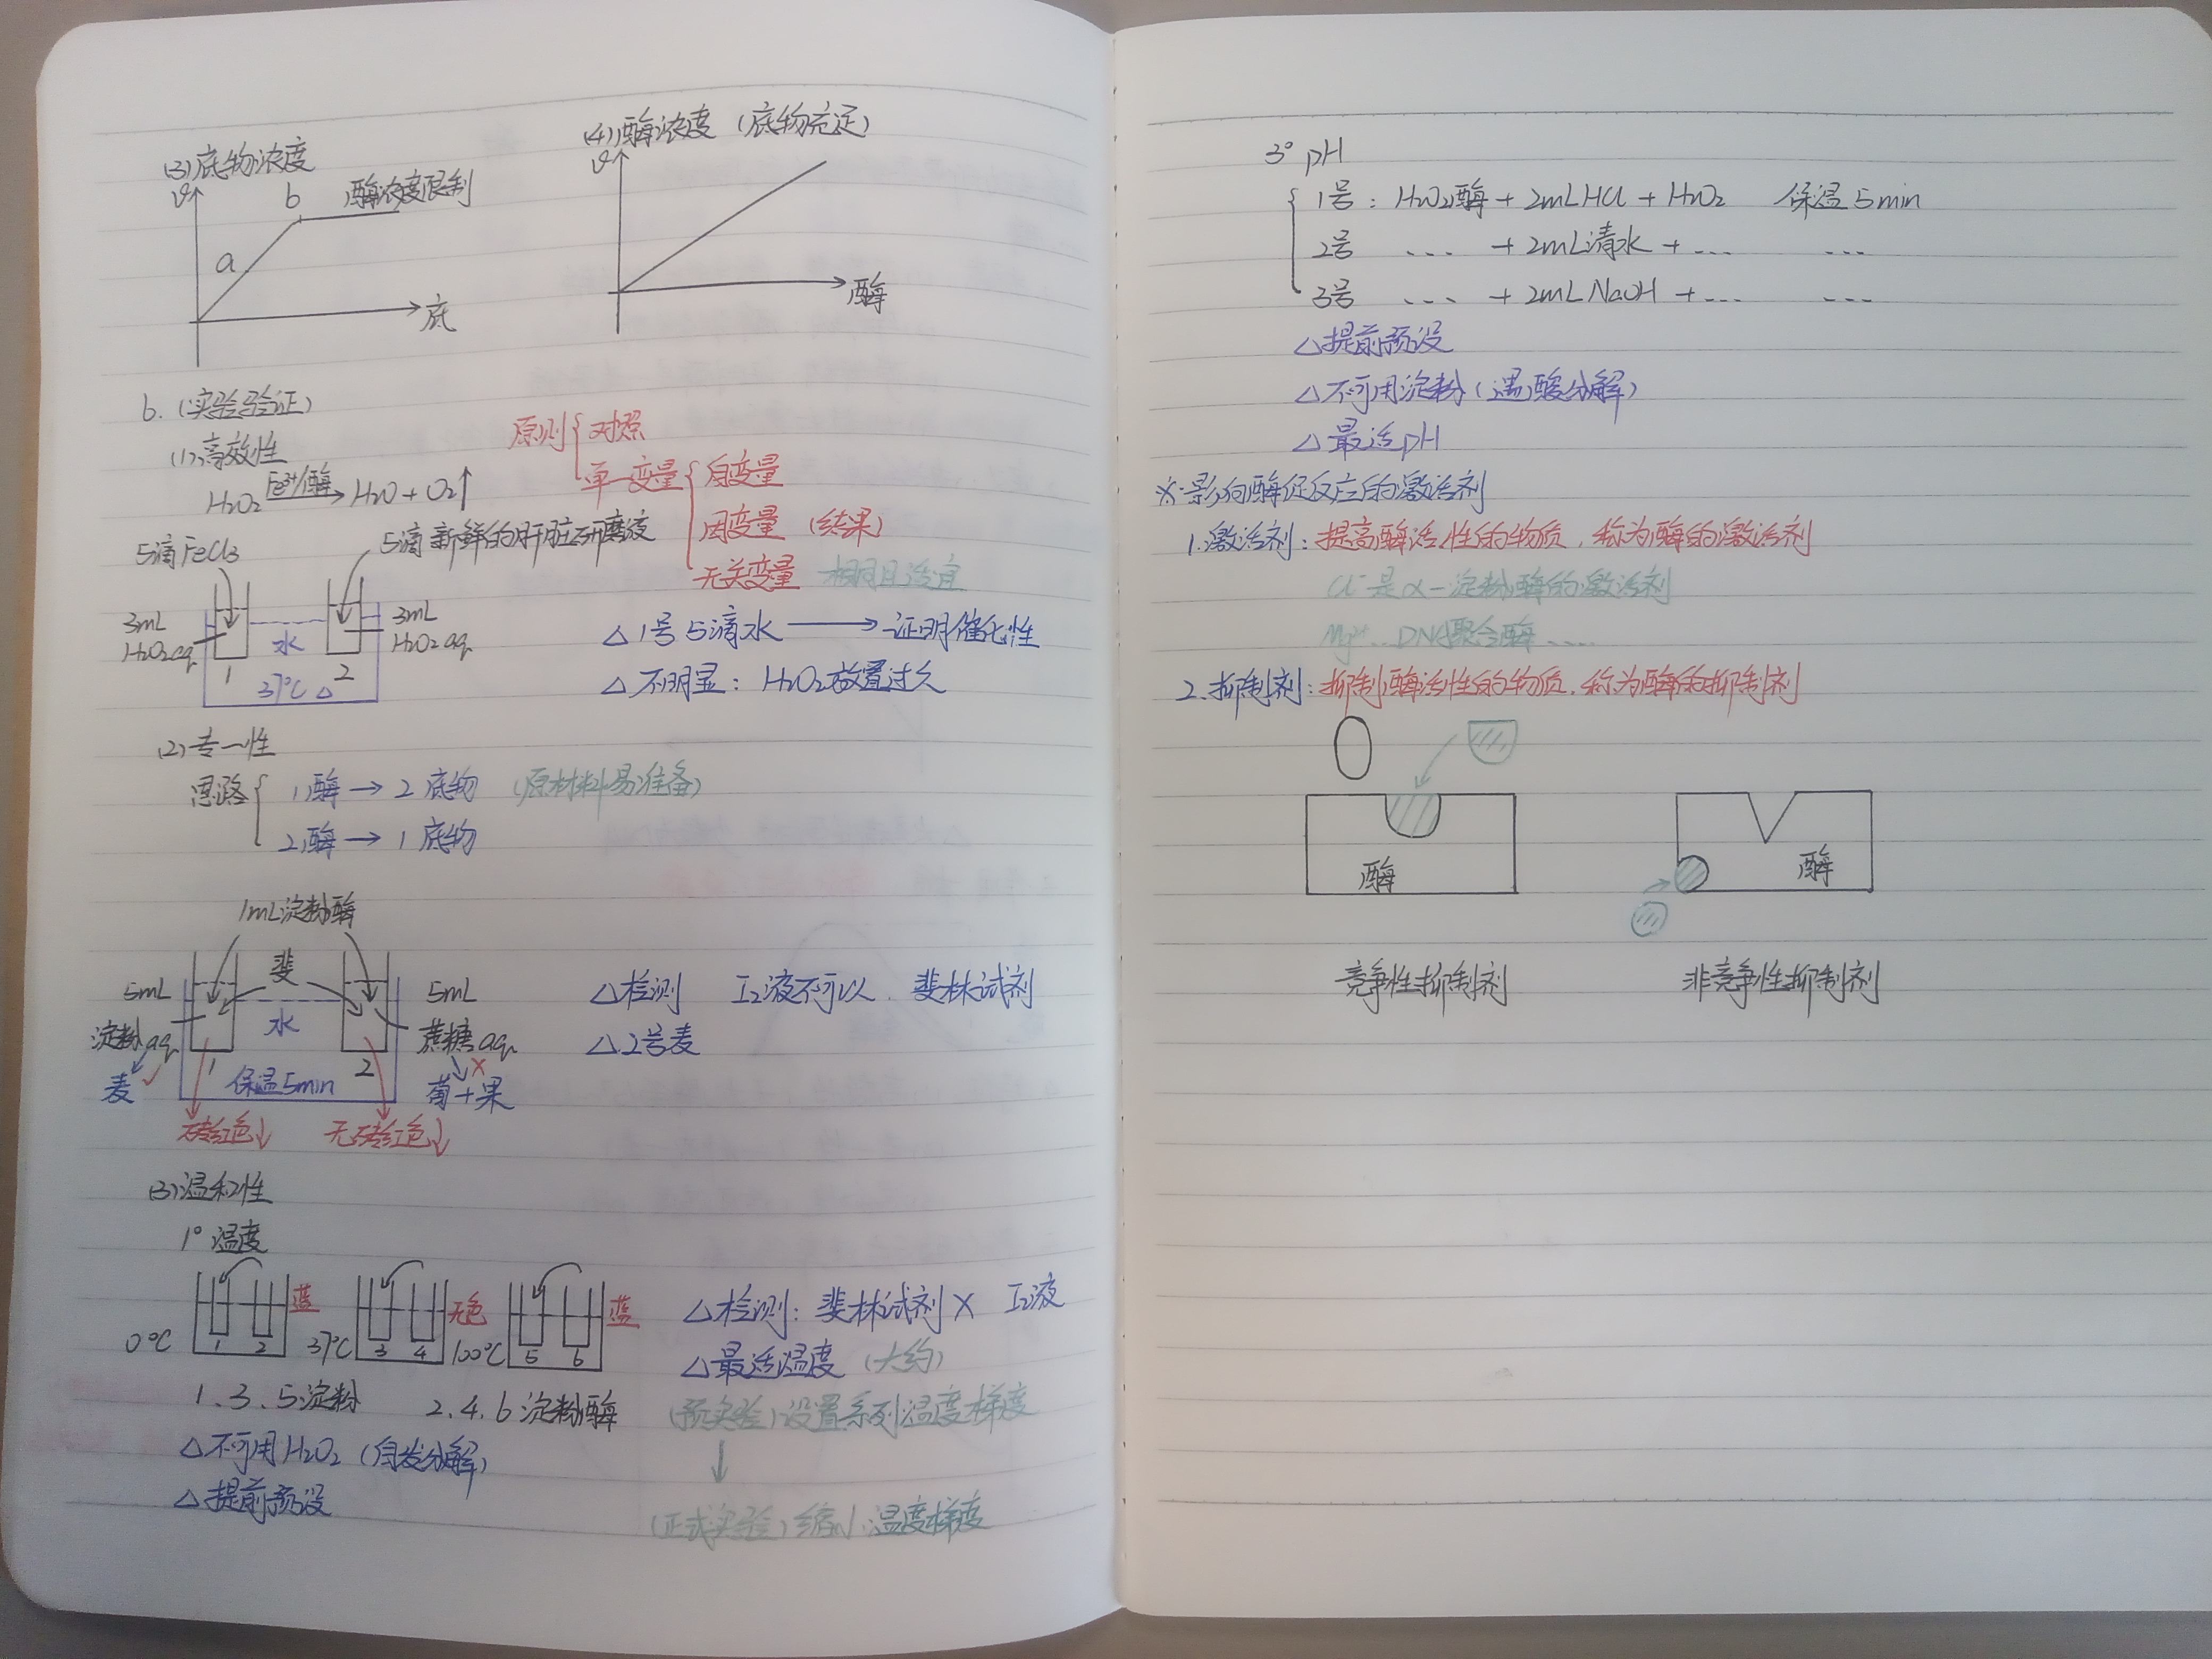 (3)底物浓度
v
a
b
酶浓度限制
底
(4)酶浓度(底物充足)
v
酶
6.(实验验证)
(1)高效性
H₂O₂ Fe³⁺/酶→ H₂O + O₂↑
原则 对照
单一变量 自变量
因变量 (结果)
无关变量 相同且适宜
5滴FeCl₃
5滴新鲜的肝脏研磨液
3mL H₂O₂ aq
水
3mL H₂O₂ aq
1
2
37℃ △
△1号5滴水 → 证明催化性
△不明显: H₂O₂放置过久
(2)专一性
思路 1酶→2底物 (原材料易准备)
2酶→1底物
1mL淀粉酶
斐
5mL 淀粉aq
水
5mL 蔗糖aq
1
2
麦 ✓
保温5min
× 葡+果
砖红色↓
无砖红色↓
△检测 I₂液不可以.斐林试剂
△2号麦
(3)温和性
1°温度
蓝
无色
蓝
0℃ 1 2
37℃ 3 4
100℃ 5 6
1.3.5淀粉 2.4.6淀粉酶
△不可用H₂O₂(自发分解)
△提前预设
△检测: 斐林试剂× I₂液
△最适温度(大约)
(预实验)设置系列温度梯度
↓
(正式实验)缩小温度梯度
3° pH
1号: H₂O₂酶+2mLHCl+H₂O₂ 保温5min
2号 ... +2mL清水+... ...
3号 ... +2mLNaOH+... ...
△提前预设
△不可用淀粉(遇酸分解)
△最适pH
※影响酶促反应的激活剂
1.激活剂:提高酶活性的物质.称为酶的激活剂
Cl⁻是α-淀粉酶的激活剂
Mg²⁺...DNA聚合酶....
2.抑制剂:抑制酶活性的物质.称为酶的抑制剂
酶
酶
竞争性抑制剂
非竞争性抑制剂